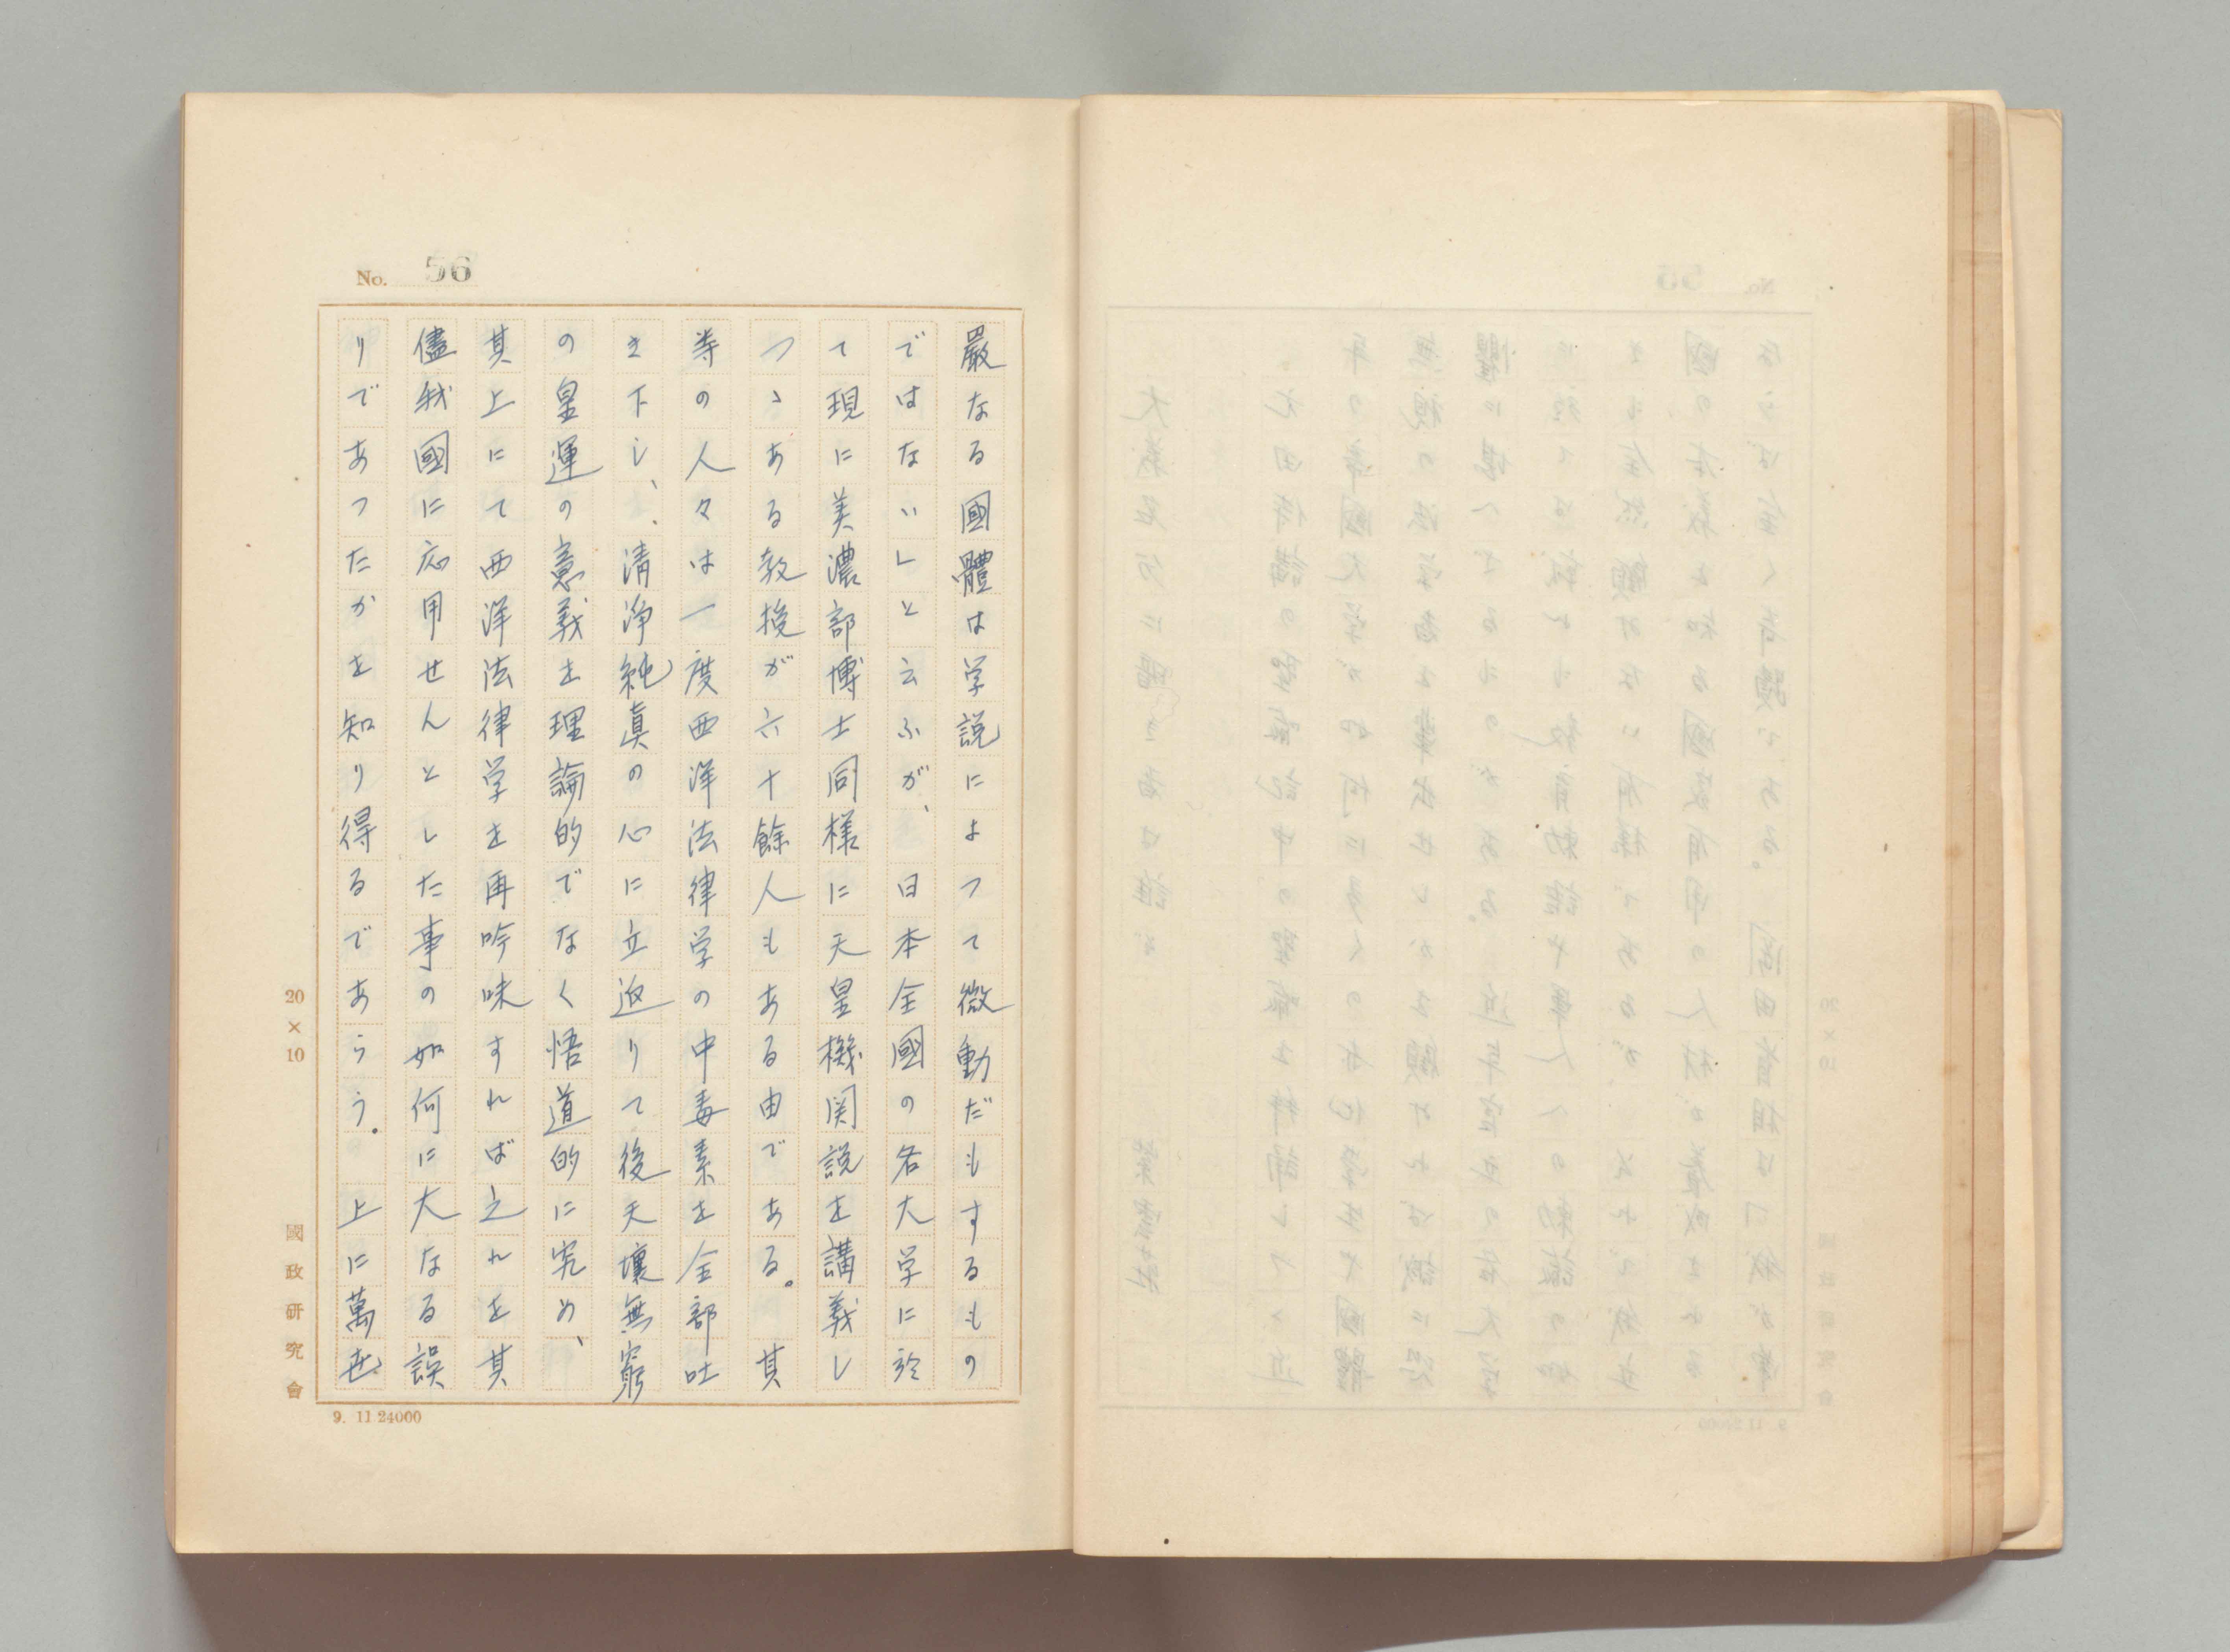 No. 56
嚴なる國體は学説によつて微動だもするもの
ではない」と云ふが、日本全國の各大学に於
て現に美濃部博士同様に天皇機関説を講義し
つゝある教授が六十餘人もある由である。其
等の人々は一度西洋法律学の中毒素を全部吐
き下し、清浄純真の心に立返りて後天壤無窮
の皇運の意義を理論的でなく悟道的に究め、
其上にて西洋法律学を再吟味すれば之れを其
儘我國に応用せんとした事の如何に大なる誤
りであつたかを知り得るであらう。上に萬世
20×10
國政研究會
9. 11 24000